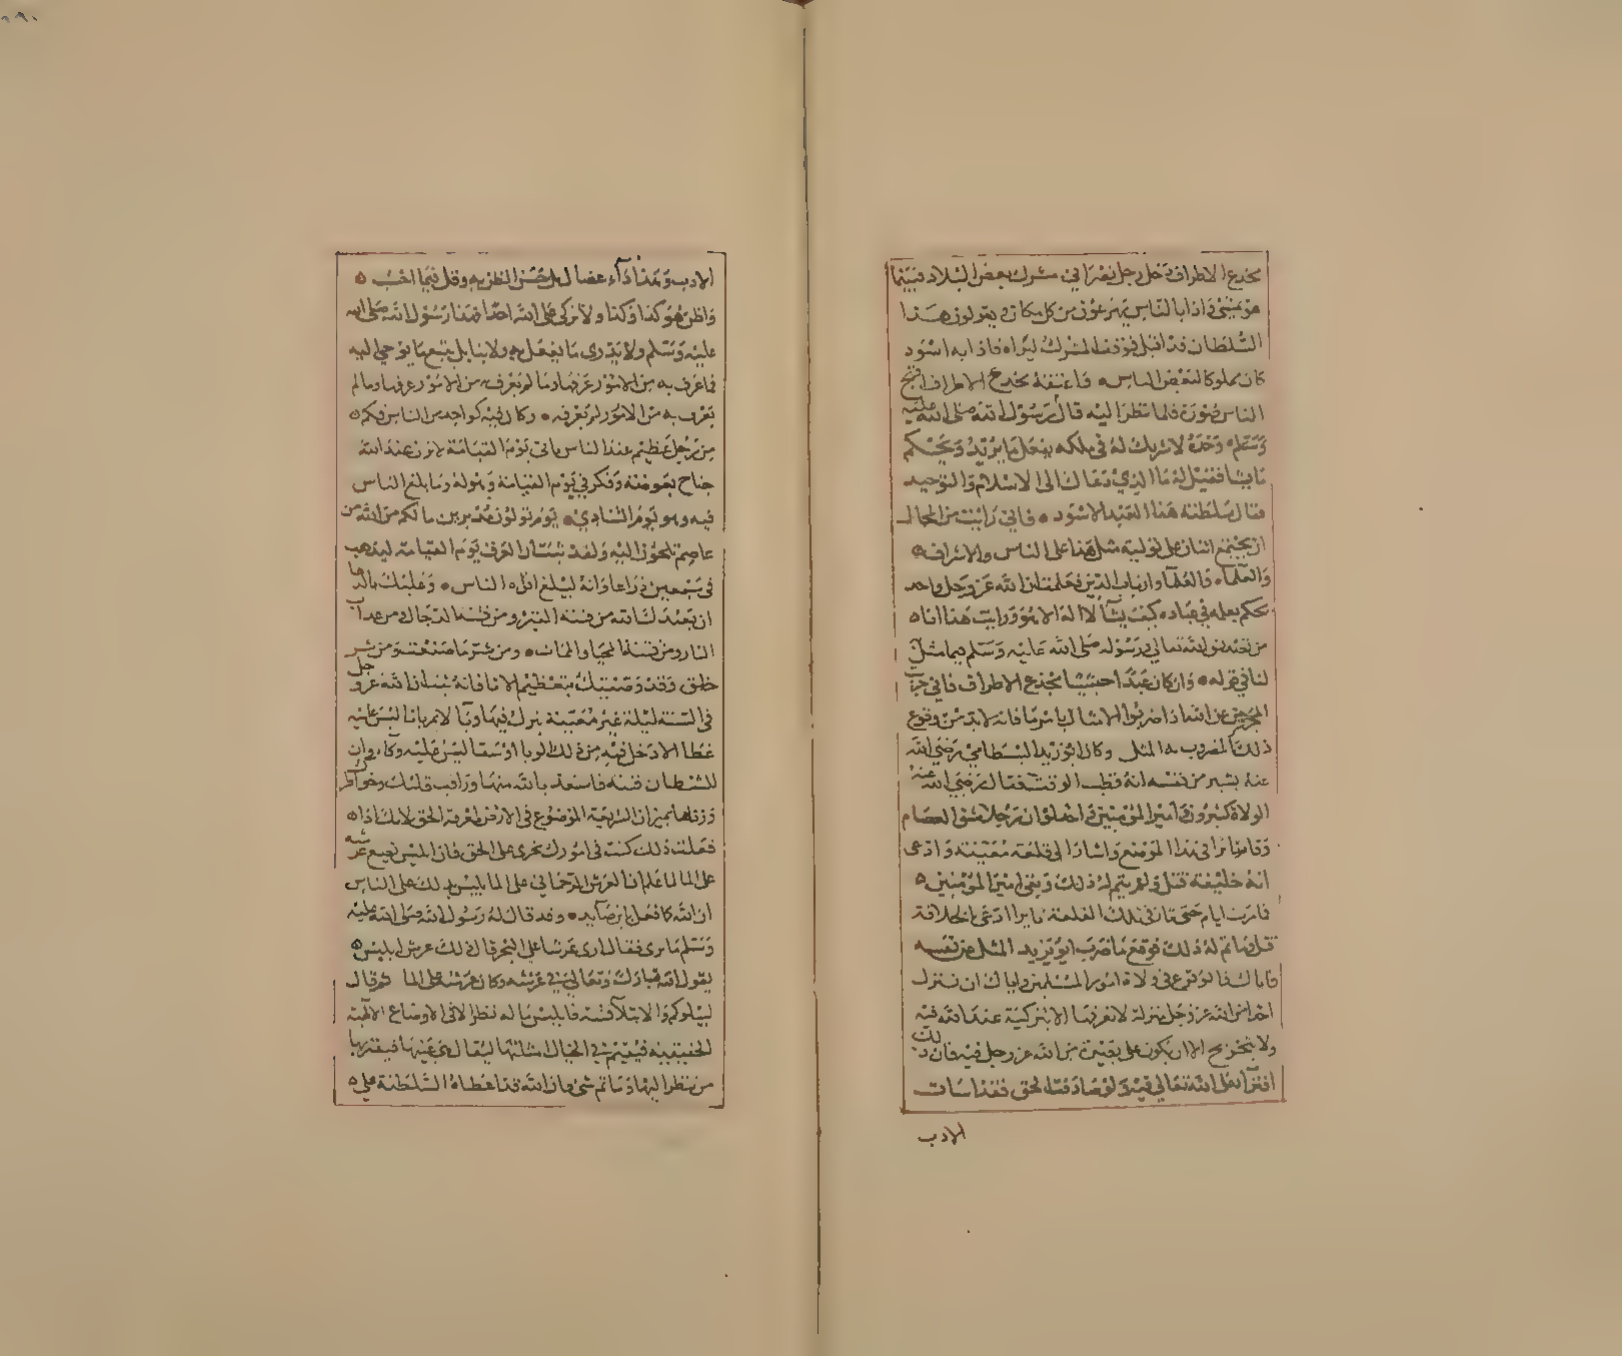 مجدع الاطراف دخل رجل نصراني مشرك بعض البلاد فبينما
هو يمشي واذا بالناس يهرعون من كل مكان يقولون هذا
السلطان قد اقبل فوقف المشرك ليراه فاذا به اسود
كان مملوكا لبعض الناس فاعتقه مجدع الاطراف اقبح
الناس صورة فلما نظر اليه قال رسول الله صلى الله عليه
وسلم وحده لا شريك له في ملكه يفعل ما يريد ويحكم
ما يشا فقيل له ما الذي دعاك الى الاسلام والتوحيد
فقال سلطنة هذا العبد الاسود فاني رايت من المحال
ان يجتمع اثنان على تولية مثل هذا على الناس والاشراف
والعلما وارباب الدين فعلمت ان الله عز وجل واحد
يحكم بعلمه في عباده كيف يشا لا اله الا هو ورايت هذا انا
من قول الله تعالى رسوله صلى الله عليه وسلم فيما مثل
لنا في قوله وان كان عبدا حبشيا مجدع الاطراف فاني
عن الله اذا ضربوا الامثال بامر ما فانه لابد من وقوع
ذلك المضروب به المثل وكان ابو يزيد البسطامي رضي الله
عنه يشير من نفسه انه قطب الوقت فقال رضي الله عنه
الولاة كثيرون وامير المؤمنين واحد لو ان رجلا شق العصا
وقام في هذا الموضع واشار الى قلعة معينة وادعى
انه خليفة قتل ولم يتم له ذلك وبقي امير المؤمنين
فما مرت ايام حتى ثار في تلك القلعة ثاير ادعى الخلافة
فقتل وما تم له ذلك فوقع ما ضرب ابو يزيد المثل عن نفسه
فاياك والوقوع في ولاة امور المسلمين واياك ان تنزل
احدا من الله عز وجل منزلة لا تعرفها الا بتزكية عند الله فيه
ولا بتجريح الا ان يكون على بصيرة من الله عز وجل فيه فان ذلك
افترا على الله تعالى فيه ولو صادفت الحق فقد اسات
الادب
الادب وهذا داء عضال بل حسن الظن به وقل فيما احب
واظن هو كذا وكذا ولا نزكي على الله احدا فهذا رسول الله صلى الله
عليه وسلم ولا يدري ما يفعل به ولا بنا بل يتبع ما يوحى اليه
فما عرف به من الامور عرفها وما لم يعرف به من الامور وما لم
يعرف به من الامور لم يعرفه وكان فيه كواحد من الناس فكم
من رجل عظيم عند الناس ياتي يوم القيامة لا يزن عند الله
جناح بعوضة وفكر في يوم القيامة وهوله وما بلغ الناس
فيه وهو يوم التنادي يوم تولون مدبرين ما لكم من الله من
عاصم تلجؤن اليه ولقد العرق يوم القيامة ليذهب
في سبعين ذراعا وانه ليبلغ افواه الناس وعليك بالدعا
ان يعيذك الله من فتنة القبر ومن فتنة الدجال ومن عذاب
النار ومن فتنة المحيا والممات ومن شر ما صنعت ومن شر
خلق وقد وصيتك بتعظيم الانا فانه ثبت ان الله عز وجل
في السنة ليلة غير معينة ينزل فيها وبا لا يمر بانا ليس عليه
غطا الا دخل فيه من ذلك الوبا او سقا ليس عليه وكاء وان
للشيطان فتنة فاستعذ بالله منها وراقب قلبك وخواطرك
وزنها بميزان الشريعة الموضوع في الارض لمعرفة الحق لانك اذا
فعلت ذلك كنت في امورك تجري على الحق فان ابليس يضع عرشه
على الما لما علم ان العرش الرحماني على الما يلبس بذلك على الناس
ان الله كما فعل بابن صايد وقد قال له رسول الله صلى الله عليه
وسلم ما ترى فقال ارى عرشا على البحر قال ذلك عرش ابليس
يقول الله تبارك وتعالى في عرشه وكان عرشه على الما ثم قال
ليبلوكم والابتلاء فتنة فابليس ما له نظر الا في الاوضاع الالهية
الحقيقية فيقيم في الخيال امثلتها ليقال هي عينها فيغتر بها
من نظر اليها وما ثم شي فان الله قد اعطاه السلطنة على